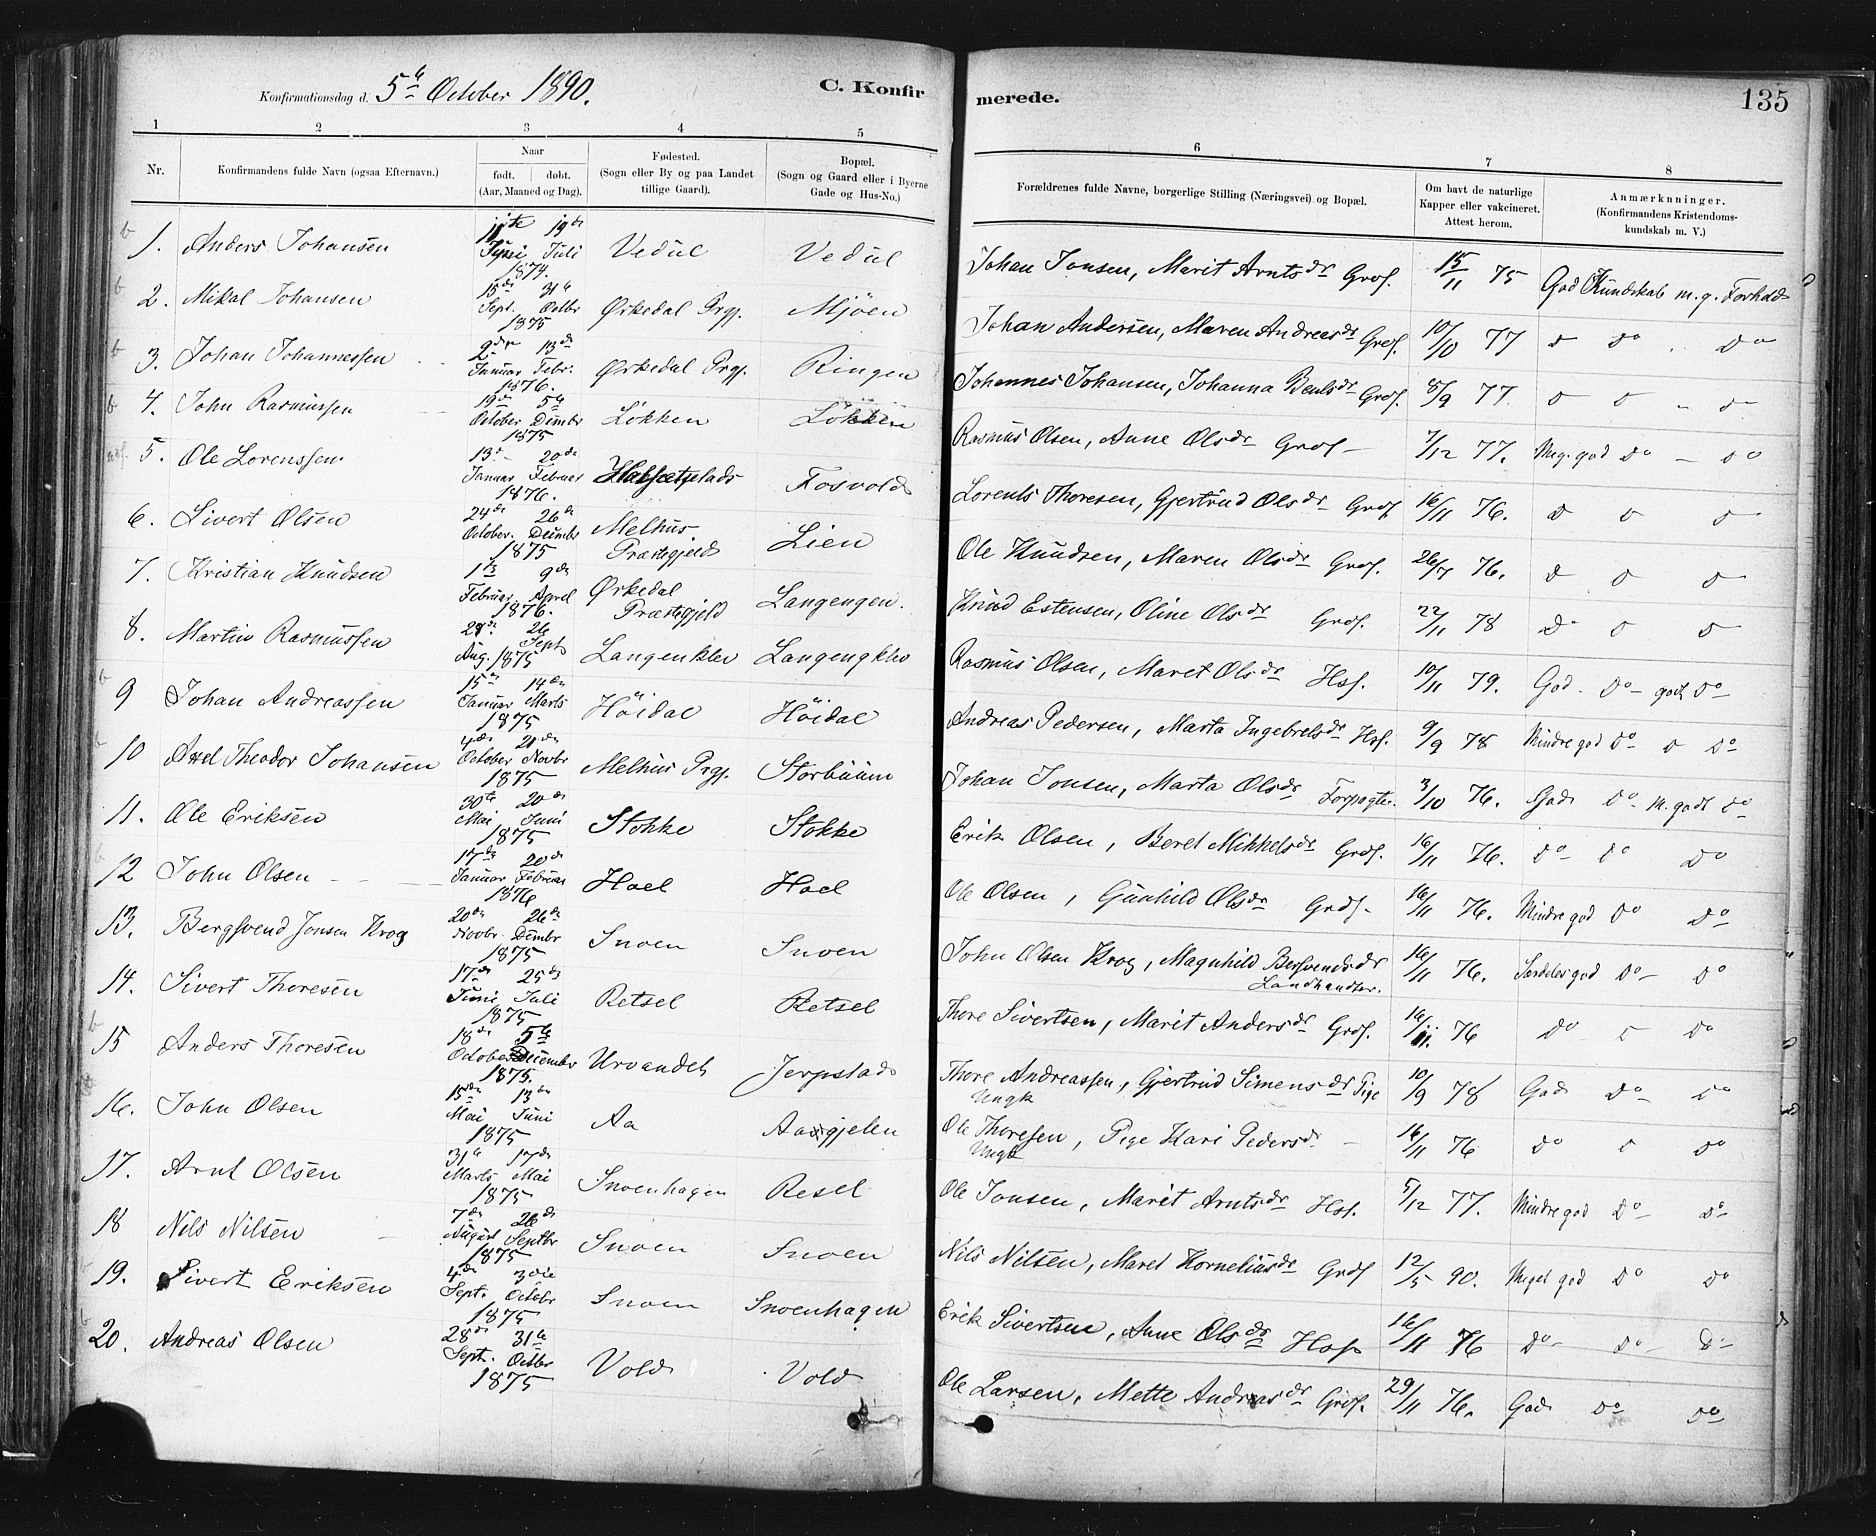 Konfirmationsdag d. 5te October 1890.
C. Konfirmerede.
135
1 2 3 4 5 6 7 8
Nr. Konfirmandens fulde Navn (ogsaa Efternavn.) Naar født. døbt. (Aar, Maaned og Dag). Fødested. (Sogn eller By og paa Landet tillige Gaard). Bopæl. (Sogn og Gaard eller i Byerne Gade og Hus-No.) Forældrenes fulde Navne, borgerlige Stilling (Næringsvei) og Bopæl. Om havt de naturlige Kapper eller vakcineret. Attest herom. Anmærknninger. (Konfirmandens Kristendoms-kundskab m. V.)
1. Anders Johansen 11te Juni 19de Juli 1874. Vedul Vedul Johan Jonsen, Marit Arntsdr Grdf. 15/11 75 God Kundskab m. g. Forhold
2. Mikal Johansen 15de Sept. 31te Octbr 1875 Ørkedal Prgj. Mjöen Johan Andersen, Maren Andreasdr Grdf. 10/10 77 do do do
3. Johan Johannessen 2den Januar 13de Febr. 1876. Ørkedal Prgj. Ringen Johannes Johansen, Johanna Bentsdr Grdf. 8/9 77. do do do
4. John Rasmussen 19de October 5te Decmbr 1875 Lökken Lökken Rasmus Olsen, Anne Olsdr Grdf. 7/12 77. Meg. god do do
5. Ole Lorenssen 13de Januar 20de Februar 1876. Fosvold Lorents Thoresen, Gjertrud Olsdr Grdf. 16/11 76. do do do
6. Sivert Olsen 24de October. 26de Decmbr 1875 Melhus Præstegjeld Lien Ole Knudsen, Maren Olsdr Grdf. 26/7 76. do do do
7. Kristian Knudsen 1ste Februar 9de April 1876. Ørkedal Præstegjeld Langengen. Knud Estensen, Oline Olsdr Grdf. 22/11 78 do do do
8. Martin Rasmussen 29de Aug. 26 Sept 1875 Langenklev Langengklev Rasmus Olsen, Maret Olsdr Hsf. 10/11 79. God do godt do
9 Johan Andreassen 15de Januar 14de Marts 1875 Höidal Höidal Andreas Pedersen, Marta Ingebretsdr Hsf. 9/9 78 Mindre god do do do
10 Axel Theodor Johansen 4de October 21de Novbr 1875 Melhus Prgj. Storbuum Johan Jonsen, Marta Olsdr Forpagter. 3/10 76. God do m. godt do
11. Ole Eriksen 30te Mai 20de Juni 1875 Stokke Stokke Erik Olsen, Beret Mikkelsdr Grdf. 16/11 76. do do do
12 John Olsen 17de Januar 20de Februar 1876 Hoel Hoel Ole Olsen, Gunhild Olsdr Grdf. 16/11 76. Mindre god do do
13. Bergsvend Jonsen Krog 20de Novbr. 26de Decmbr 1875 Snoen Snoen John Olsen Krog, Magnhild Bersvendsdr Landhandler. 16/11 76. Særdeles god do do
14. Sivert Thoresen 17de Juni 25de Juli 1875 Retsel Retsel Thore Sivertsen, Marit Andersdr Grdf. 16/11. 76 do do do
15 Anders Thoresen 18de October 5te December 1875. Urvandet Jerpstad Thore Andreassen, Ungk Gjertrud Simensdr Pige 10/9 78 God do do
16. John Olsen 15de Mai 13de Juni 1875 Aa Aasgjelen Ole Thoresen, Ungk Pige Kari Pedersdr 16/11 76 do do do
17. Arnt Olsen 31te Marts 17de Mai 1875 Snoenhagen Resel Ole Jonsen, Marit Arntsdr Hsf. 5/12 77. Mindre god do do
18 Nils Nilsen 7de August 26de Septbr 1875 Snoen Snoen Nils Nilsen, Maret Korneliusdr Grdf 12/5 90. Meget god do do
19. Sivert Eriksen 4de Sept. 3die Octobr 1875 Snoen Snoenhagen Erik Sivertsen, Anne Olsdr Hsf 16/11 76 do do do
20. Andreas Olsen 28de Sept. 31te Octbr 1875 Vold Vold Ole Larsen, Mette Andreasdr Grdf. 29/11 76. God do do